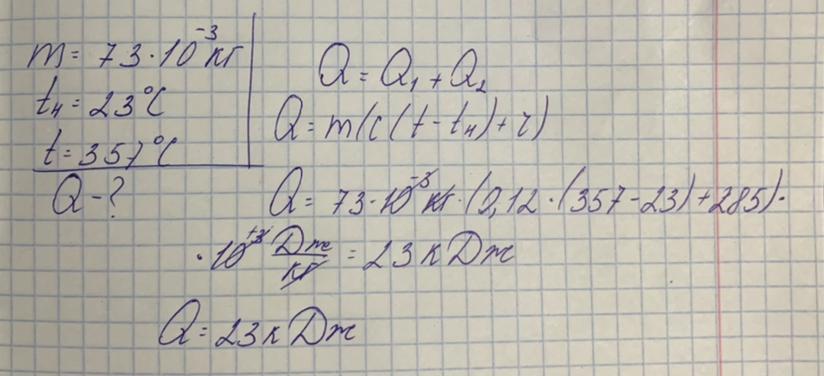 m = 73·10⁻³ кг
tн = 23°C
t = 357°C
Q - ?
Q = Q₁ + Q₂
Q = m(c(t - tн) + r)
Q = 73·10⁻³ кг·(0,12·(357-23)+285)·
·10⁺³ Дж/кг = 23 кДж
Q = 23 кДж